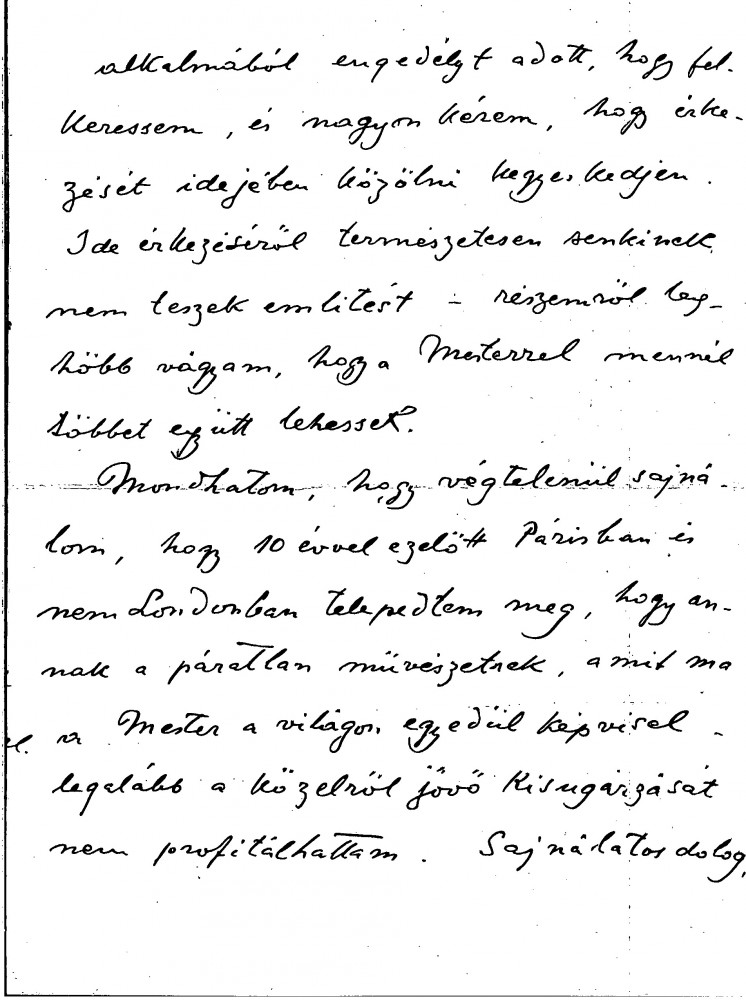 alkalmából engedélyt adott, hogy fel-
keressem, és nagyon kérem, hogy érke-
zését idejében közölni kegyeskedjen.
Ide érkezéséről természetesen senkinek
nem teszek emlitést – részemről leg-
főbb vágyam, hogy a Mesterrel mennél
többet együtt lehessek.
Mondhatom, hogy végtelenül sajná-
lom, hogy 10 évvel ezelőtt Párisban és
nem Londonban telepedtem meg, hogy an-
nak a páratlan művészetnek, amit ma
a Mester a világon egyedül képvisel –
legalább a közelről jövő kisugárzását
nem profitálhattam. Sajnálatos dolog,